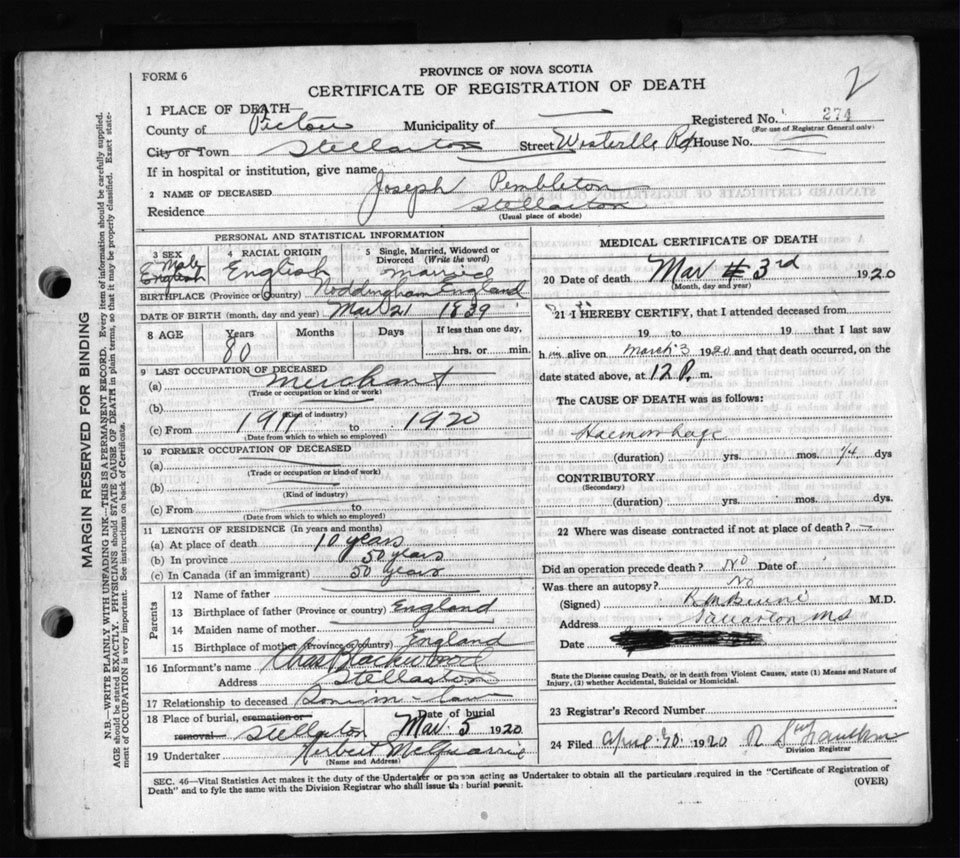 PROVINCE OF NOVA SCOTIA
FORM 6
CERTIFICATE OF REGISTRATION OF DEATH
2
1 PLACE OF DEATH—
Registered No. 274
(For use of Registrar General only)
County of Pictou Municipality of —
City or Town Stellarton Street Westville Rd House No.
If in hospital or institution, give name
2 NAME OF DECEASED Joseph Pembleton
Residence Stellarton
(Usual place of abode)
PERSONAL AND STATISTICAL INFORMATION
3 SEX Male English
4 RACIAL ORIGIN English
5 Single, Married, Widowed or Divorced (Write the word) Marraid
BIRTHPLACE (Province or Country) Noddingham England
DATE OF BIRTH (month, day and year) Mar 21 1839
8 AGE Years 80 Months Days If less than one day, hrs. or min.
9 LAST OCCUPATION OF DECEASED
(a) Merchant
(Trade or occupation or kind or work)
(b)
(Kind of industry)
(c) From 1917 to 1920
(Date from which to which so employed)
10 FORMER OCCUPATION OF DECEASED
(a)
(Trade or occupation or kind of work)
(b)
(Kind of industry)
(c) From to
(Date from which to which so employed)
11 LENGTH OF RESIDENCE (In years and months)
(a) At place of death 10 years
(b) In province 50 years
(c) In Canada (if an immigrant) 50 years
Parents
12 Name of father
13 Birthplace of father (Province or country) England
14 Maiden name of mother
15 Birthplace of mother (Province or country) England
16 Informant's name Chas Blackwood
Address Stellarton
17 Relationship to deceased Son in-law
18 Place of burial, cremation or removal Stellarton Date of burial Mar 5 1920
19 Undertaker Herbert McQuarrie
(Name and Address)
MEDICAL CERTIFICATE OF DEATH
20 Date of death Mar 3rd 1920
(Month, day and year)
21 I HEREBY CERTIFY, that I attended deceased from
19 to 19 that I last saw
him alive on March 3 1920 and that death occurred, on the
date stated above, at 12 P. m.
The CAUSE OF DEATH was as follows:
Haemorrhage
(duration) yrs. mos. 14 dys
CONTRIBUTORY
(Secondary)
(duration) yrs. mos. dys.
22 Where was disease contracted if not at place of death? —
Did an operation precede death? No Date of
Was there an autopsy? No
(Signed) M.D.
Address
Date
State the Disease causing Death, or in death from Violent Causes, state (1) Means and Nature of
Injury, (2) whether Accidental, Suicidal or Homicidal.
23 Registrar's Record Number
24 Filed April 1920
Division Registrar
SEC. 46—Vital Statistics Act makes it the duty of the Undertaker or person acting as Undertaker to obtain all the particulars required in the "Certificate of Registration of
Death" and to fyle the same with the Division Registrar who shall issue the burial permit.
(OVER)
MARGIN RESERVED FOR BINDING
N.B.—WRITE PLAINLY WITH UNFADING INK—THIS IS A PERMANENT RECORD. Every item of information should be carefully supplied.
AGE should be stated EXACTLY. PHYSICIANS should STATE CAUSE OF DEATH in plain terms, so that it may be properly classified. Exact state-
ment of OCCUPATION is very important. See instructions on back of Certificate.